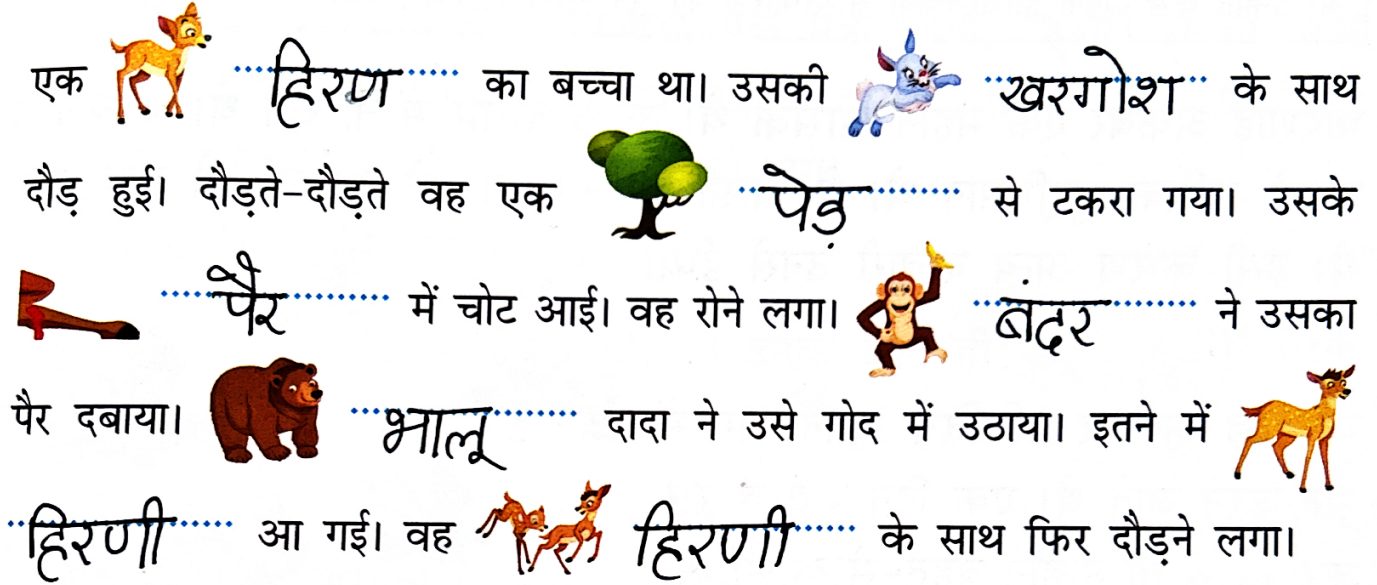 एक हिरण का बच्चा था। उसकी खरगोश के साथ
दौड़ हुई। दौड़ते-दौड़ते वह एक पेड़ से टकरा गया। उसके
पैर में चोट आई। वह रोने लगा। बंदर ने उसका
पैर दबाया। भालू दादा ने उसे गोद में उठाया। इतने में
हिरणी आ गई। वह हिरणी के साथ फिर दौड़ने लगा।